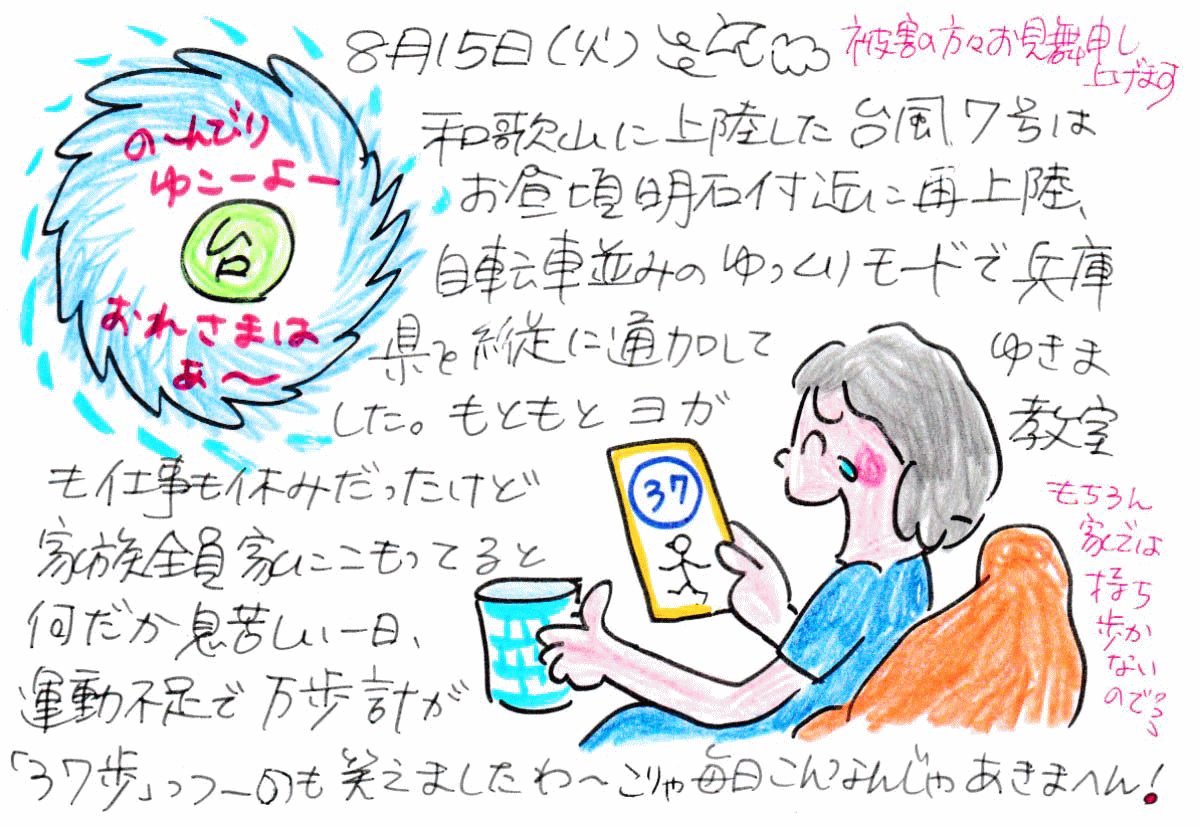 8月15日(火)
被害の方々お見舞申し
上げます
の〜んびり
ゆこーよー
台
おれさまは
ぁ〜
和歌山に上陸した台風7号は
お昼頃明石付近に再上陸、
自転車並みのゆっくりモードで兵庫
県を縦従に通加して ゆきま
した。もともとヨガ 教室
も仕事も休みだったけど
家族全員家にこもってると
何だか息苦しい一日、
運動不足で万歩計が
「37歩」っつーのも笑えましたわ〜こりゃ毎日こんなんじゃあきまへん!
37
もちろん
家では
持ち
歩か
ない
ので